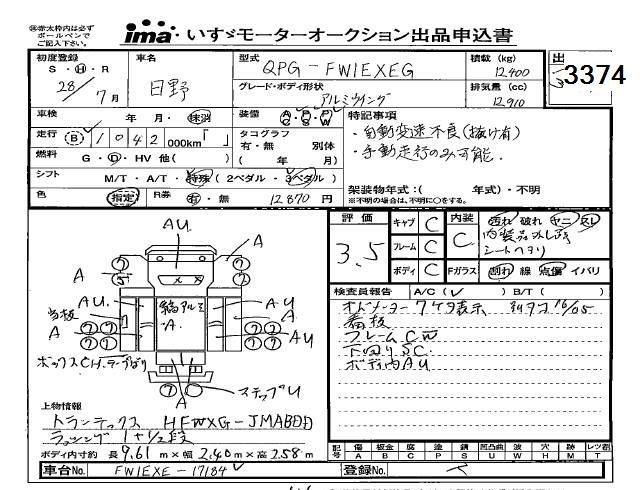 ㊟赤太枠内は必ず
ボールペンで
ご記入下さい。
ima・いすゞモーターオークション出品申込書
初度登録 車名 型式 積載 (kg) 出
S・H・R 日野 QPG-FW1EXEG 12400 3374
28/7月 グレード・ボディ形状 排気量 (cc)
アルミウイング 12910
車検 年 月・抹消 装備 A・P・P C S W 特記事項
走行 B 1042 000km「 」 タコグラフ ・自動変速不良(抜け有)
有・無 別体 ・手動走行のみ可能。
燃料 G・D・HV 他( ) ( 年 月)
シフト M/T・A/T・特殊(2ペダル・3ペダル) 架装物年式:( 年式)・不明
※不明の場合は、不明に○をする。
色 指定 R券 有・無 12870円
評価 3.5
キャブ C 内装 C 汚れ 破れ ヤニ スレ
フレーム C 内装品外し跡
シートヘタリ
ボディ C Fガラス 割れ 線 点傷 イバリ
検査員報告 A/C(✓) B/T( )
オドメーター7ケタ表示
看板
フレームCW
下回りSC
ボディ内AU
AU
A
A
AU
当板
A
縞アルミ
A
AU
A
A
ステップU
A
上物情報
トランテックス HFWXG-JMABDD
ラッシング1+1/2段
ボディ内寸約 長9.61m×幅2.40m×高2.58m
記号 傷A 板金B 腐C 塗P 錆S 凹凸曲U 波W 穴H 㐂M レツ㐂T
車台No. FW1EXE-17184 登録No.